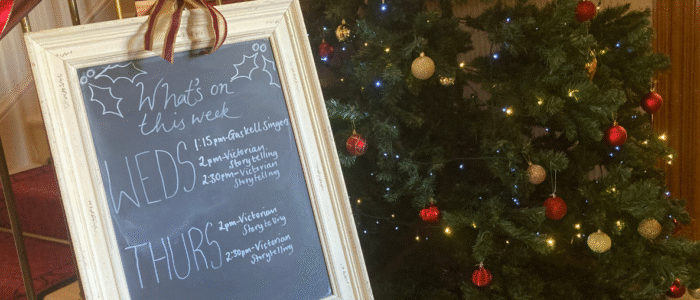 What's on
this week
WEDS
1:15pm-Gaskell Singers
2pm-Victorian
Storytelling
2:30pm-Victorian
Storytelling
THURS
2pm-Victorian
Storytelling
2:30pm-Victorian
Storytelling